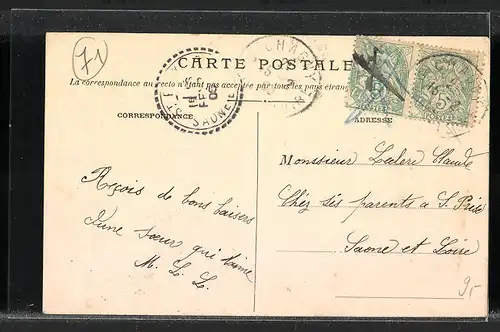 71
CARTE POSTALE
La correspondance au recto n'étant pas acceptée par tous les pays étrangers
CORRESPONDANCE
ADRESSE
CHAGNY
Reçois de bons baisers
d'une sœur qui t'aime
M. L. L.
Monsieur Leclerc Claude
Chéz sés parents a S.
Saone et Loire
9-